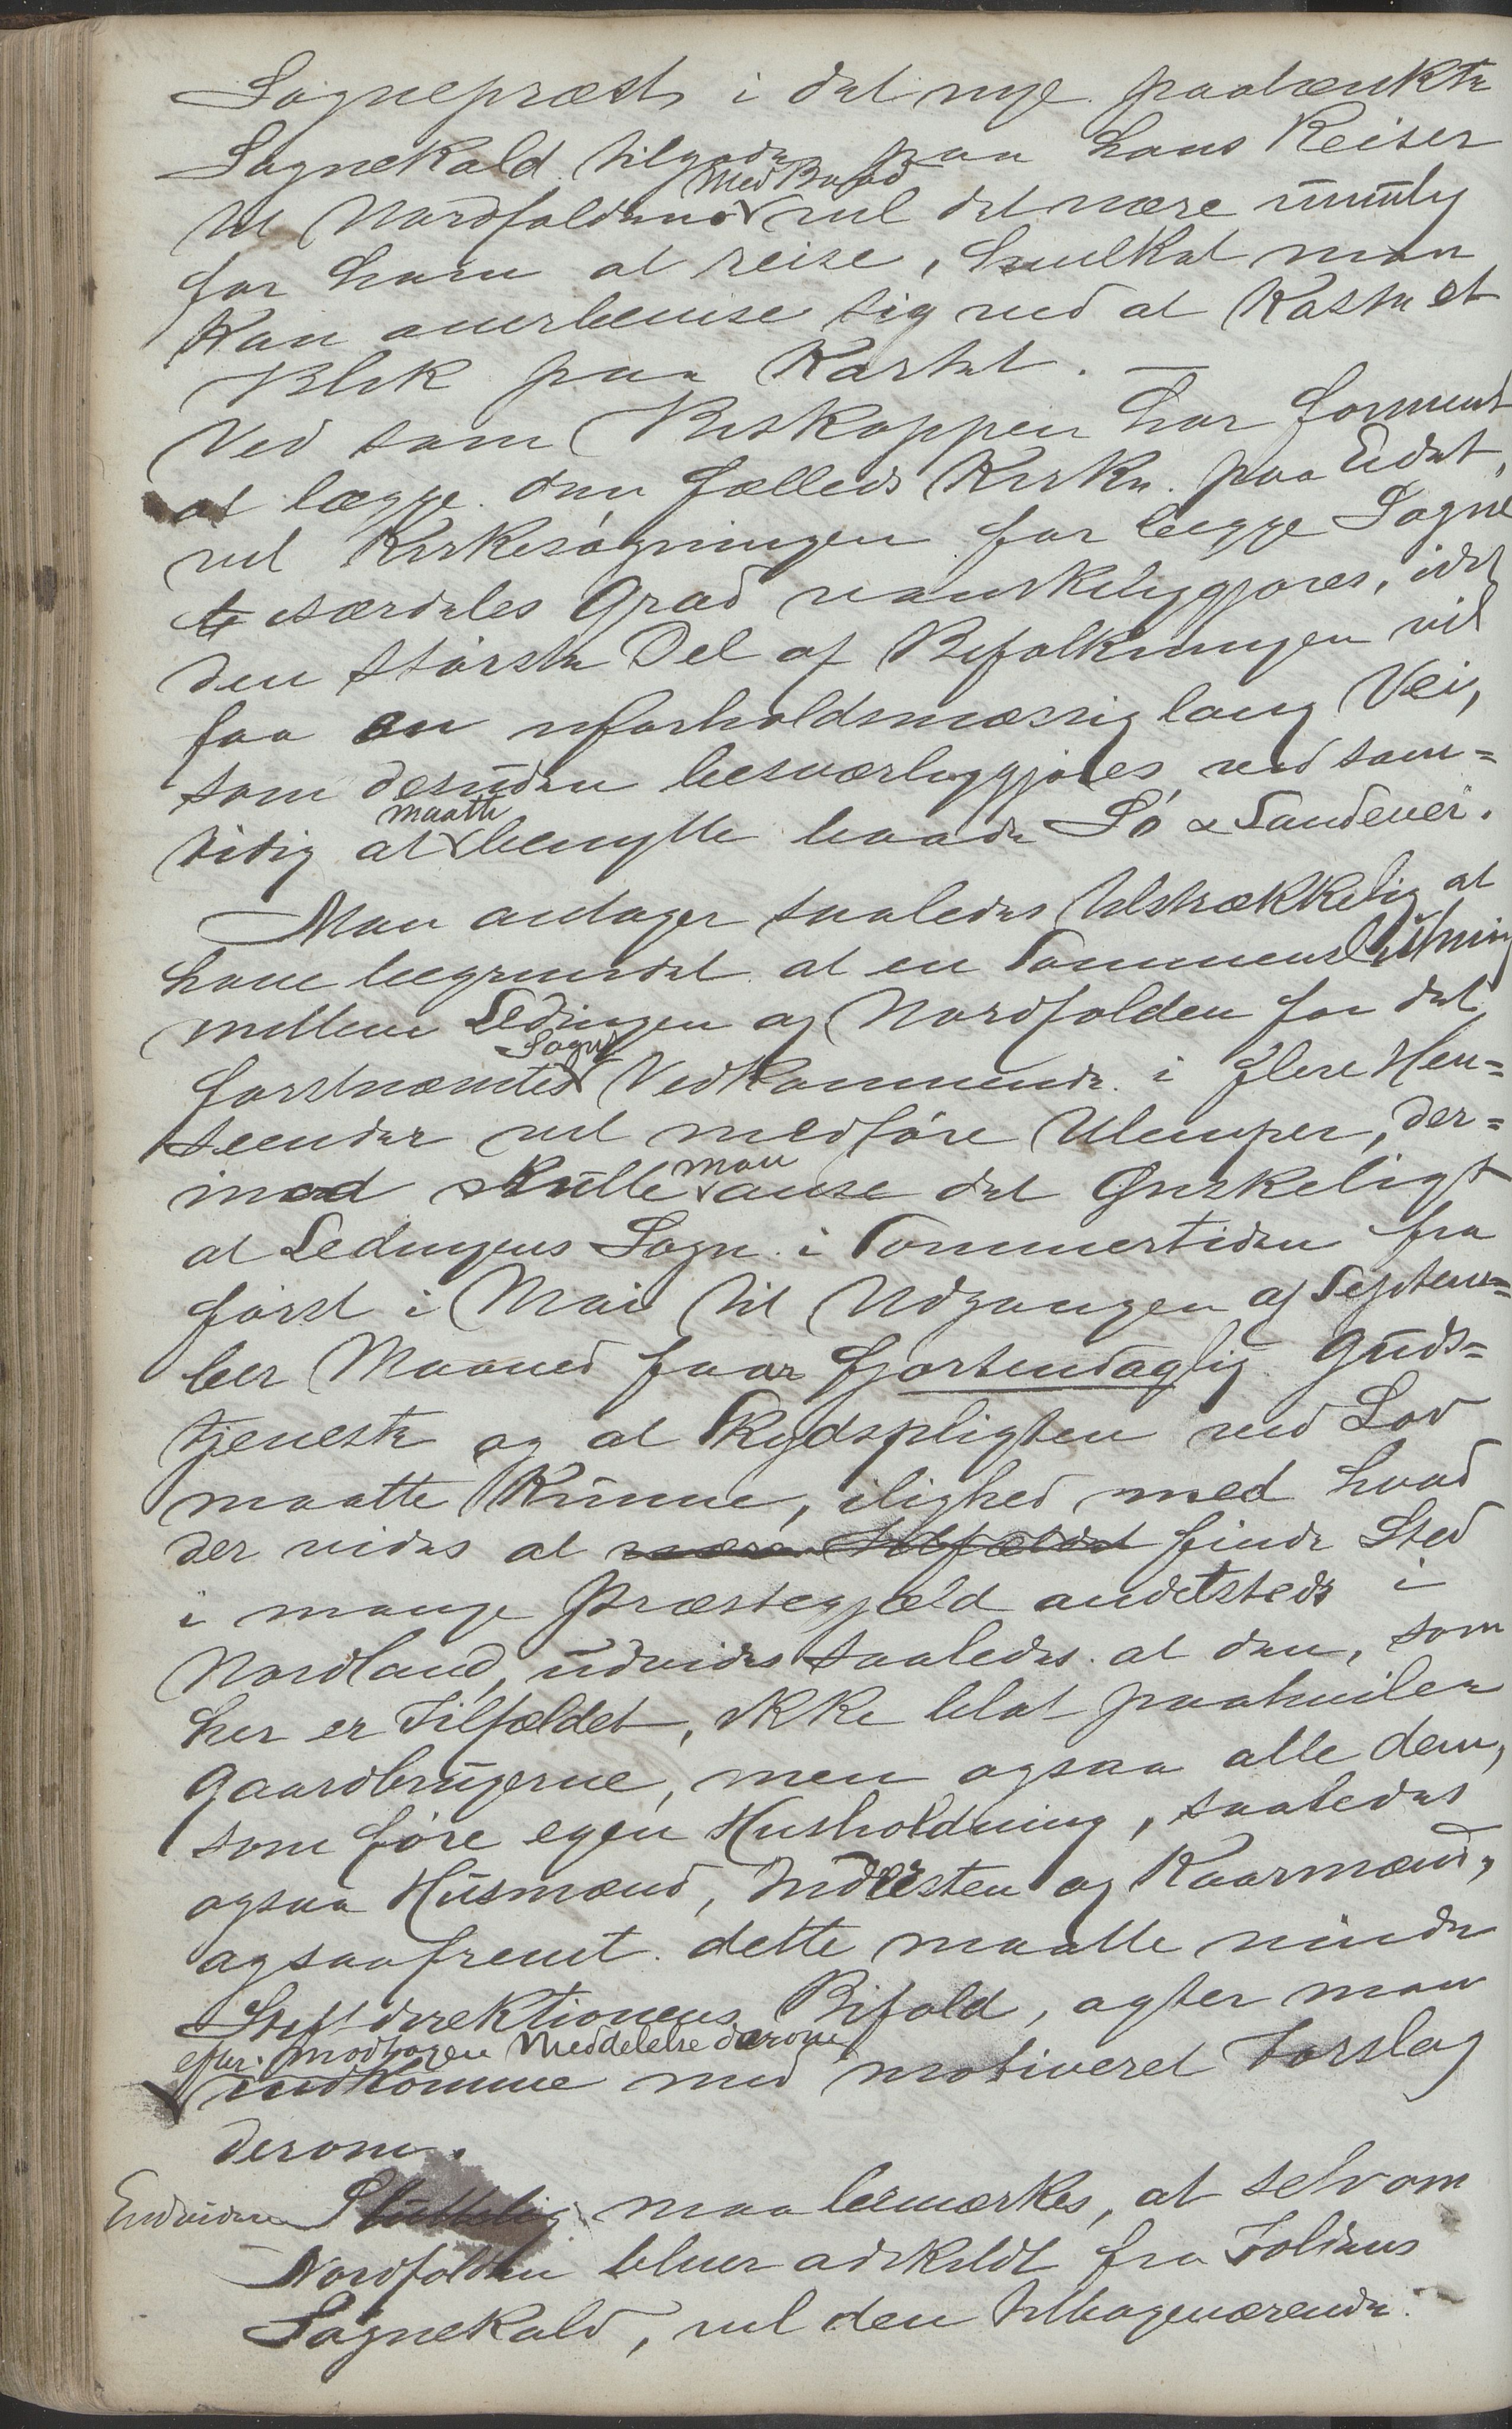 Sognepræst i det nye paatænkte
Sognekald tilgode paa hans Reiser
til Nordfolden Med Baad vil det være umuly
for ham at reise, hvilket man
kan overbevise sig ved at kaste et
Blik paa Kartet. —
Ved som Biskoppen har forment
at lægge den fælleds Kirke paa Eidet,
vil Kirkesøgningen for begge Sogne
i særdeles Grad vanskeliggjøres, idet
den største Del af Befolkningen vil
faa en uforholdsmæssig lang Vei,
som desuden besværliggjøres ved sam=
tidig at maatte benytte baade Sø & Landevei.
Man antager saaledes tilstrækkelig at
have begrundet at en Sammenslutning
mellem Ledingen og Nordfolden for det
førstnæmtes Sogns Vedkommende i flere Hen=
seender vil medføre Ulemper, der=
imod skulle man anse det Ønskeligt
at Ledingens Sogn i Sommertiden fra
først i Mai til Udgangen af Septem=
ber Maaned faar fjortendaglig Guds=
tjeneste og at Skydspligten ved Lov
maatte kunne, ilighed med hvad
der vides at være Tilfældet finde Sted
i mange Præstegjæld andetsteds i
Nordland, udvides saaledes at den, som
her er Tilfældet, ikke blot paahviler
Gaardbrugerne, men ogsaa alle dem,
som føre egen Husholdning, saaledes
ogsaa Husmænd, Inderster og Kaarmænd,
og saafremt dette maatte vinde
Stiftdirektionens Bifald, agter man
efter modtagen Meddelelse derom
indkomme med motiveret Forslag
derom.
Endvidere Sluttelig maa bemærkes, at selv om
Nordfolden bliver adskildt fra Foldens
Sognekald, vil den tilbageværende